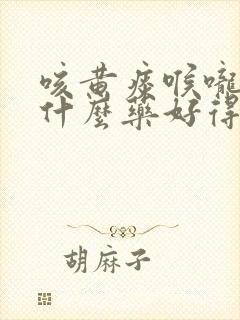 咳黄痰喉嚨
什麼藥好得
胡麻子